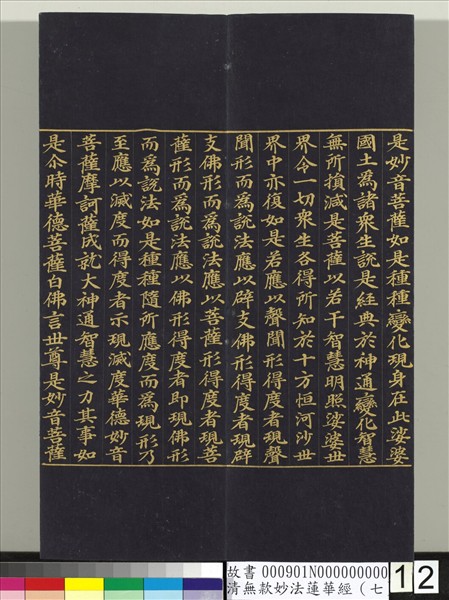 是妙音菩薩如是種種變化現身在此娑婆
國土為諸衆生說是經典於神通變化智慧
無所損減是菩薩以若干智慧明照娑婆世
界令一切衆生各得所知於十方恒河沙世
界中亦復如是若應以聲聞形得度者現聲
聞形而為說法應以辟支佛形得度者現辟
支佛形而為說法應以菩薩形得度者現菩
薩形而為說法應以佛形得度者即現佛形
而為說法如是種種隨所應度而為現形乃
至應以滅度而得度者示現滅度華德妙音
菩薩摩訶薩成就大神通智慧之力其事如
是尒時華德菩薩白佛言世尊是妙音菩薩
故書 000901N000000000
清無款妙法蓮華經（七
12